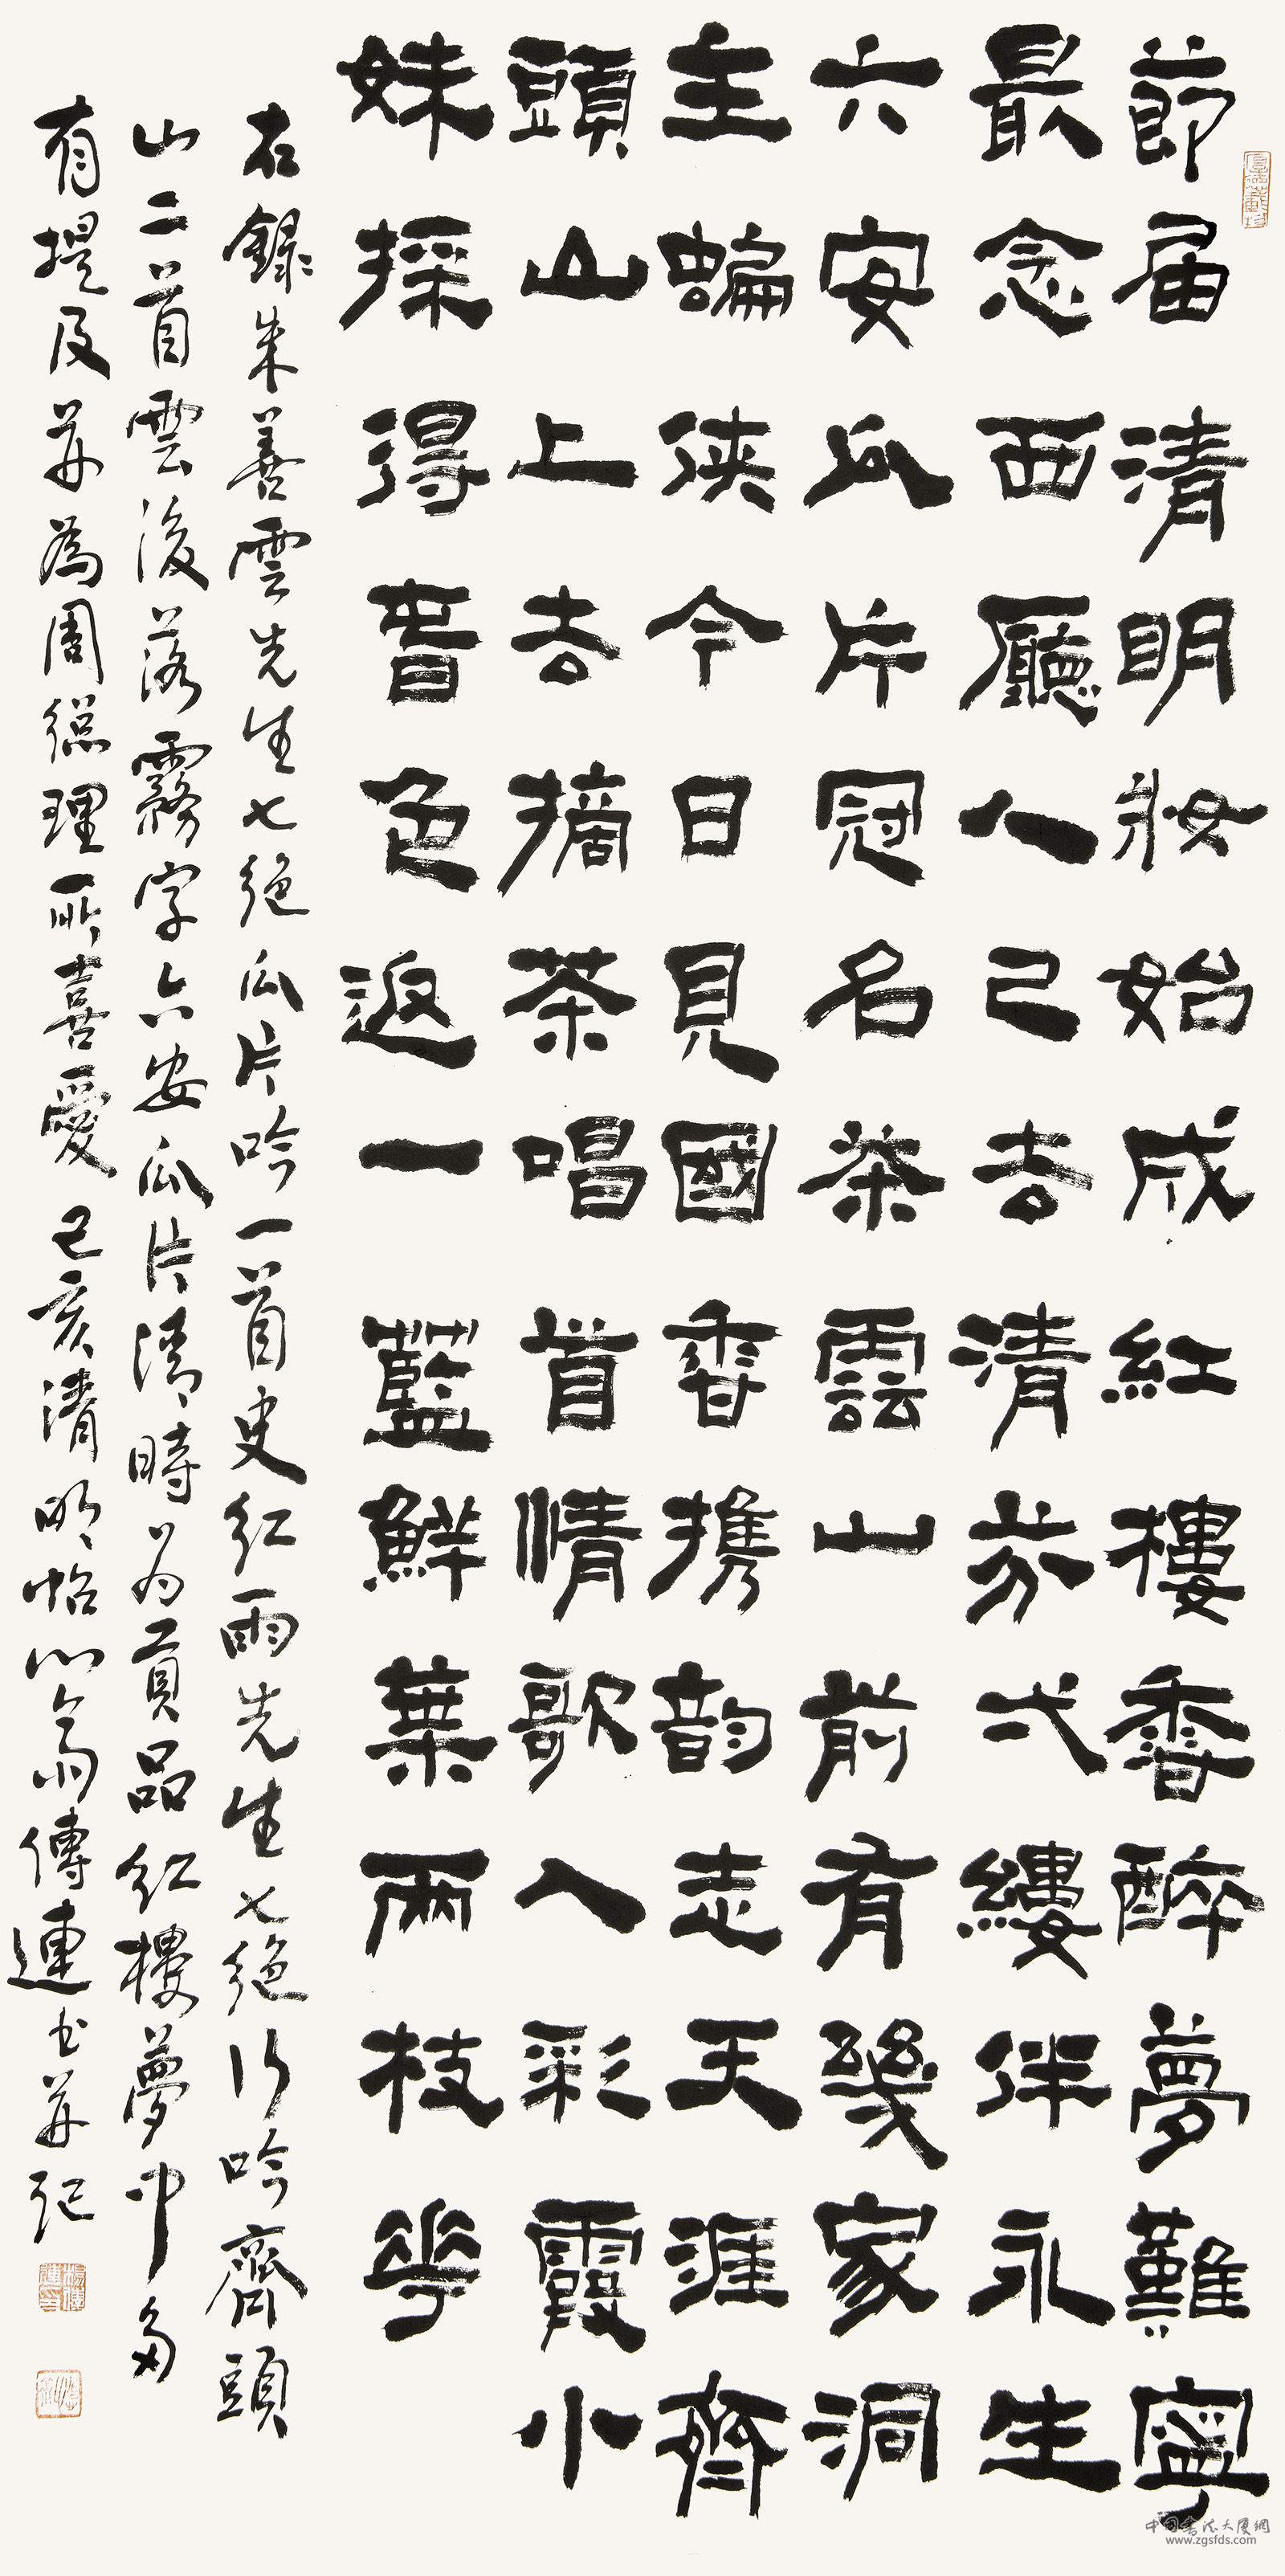 節届清明妝始成紅樓香醉夢難寧
最念西廳人已去清芬弌縷伴永生
六安瓜片冠名茶雲山前有幾家洞
主蝙俠今日見國香携韵志天涯齊
頭山上去摘茶唱首情歌入彩霞小
妹採得春色返一藍鮮葉兩枝花
右録朱善雲先生七絶瓜片吟一首史紅雨先生七絶行吟齊頭
山二首雲後落霧字六安瓜片清時为貢品紅樓夢中多
有提及并為周總理所喜愛己亥清明怡心斋傳連书并记
中国書法大厦網
www.zgsfds.com